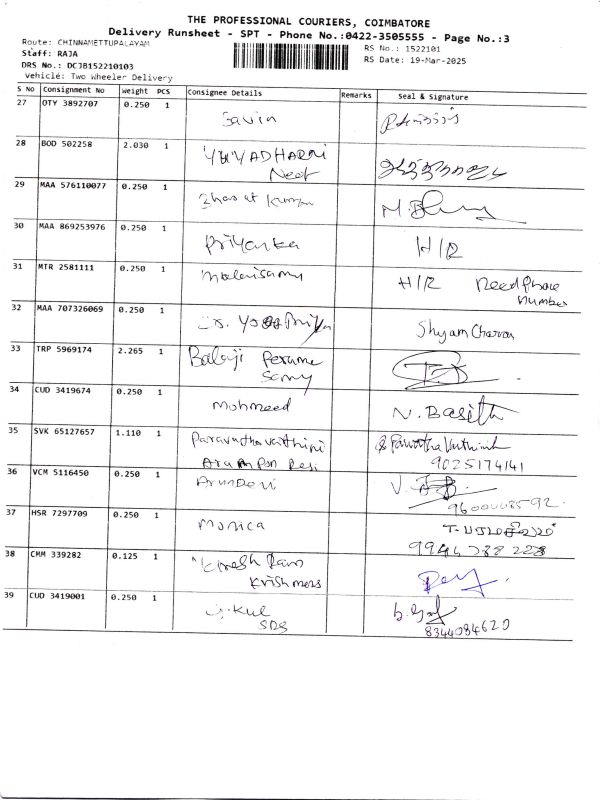 THE PROFESSIONAL COURIERS, COIMBATORE
Delivery Runsheet - SPT - Phone No.:0422-3505555 - Page No.:3
Route: CHINNAMETTUPALAYAM
RS No.: 1522101
Staff: RAJA
RS Date: 19-Mar-2025
DRS No.: DCJB152210103
Vehicle: Two Wheeler Delivery
S No Consignment No Weight PCS Consignee Details Remarks Seal & Signature
27 OTY 3892707 0.250 1
28 BOD 502258 2.030 1 YUVADHARNI
Neet
29 MAA 576110077 0.250 1 Bharat Kumar
30 MAA 869253976 0.250 1 Priyanka H/R
31 MTR 2581111 0.250 1 Malaisamy H/R Need Phone
number
32 MAA 707326069 0.250 1 Shyam Charan
33 TRP 5969174 2.265 1 Balaji Perume
Samy
34 CUD 3419674 0.250 1 Mohmeed N. Basith
35 SVK 65127657 1.110 1
9025174141
36 VCM 5116450 0.250 1 Arun Devi
37 HSR 7297709 0.250 1 Monica
9944288228
38 CMM 339282 0.125 1
39 CUD 3419001 0.250 1
SDS 8344084620